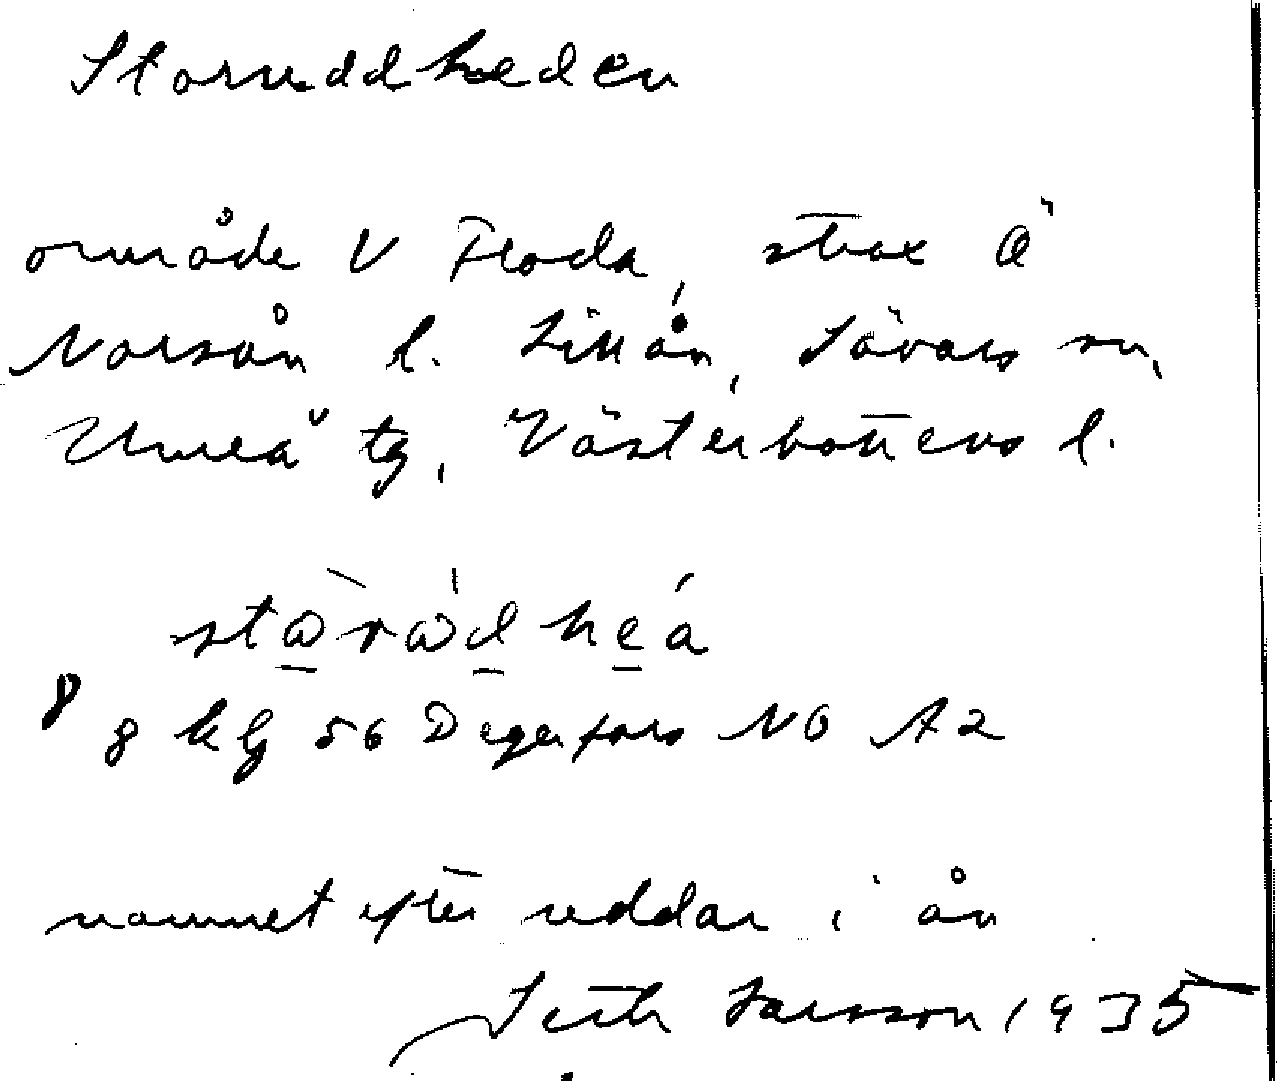 Storuddheden
område V Floda, strax Ö
Norsån l. Lillån, Sävars sn,
Umeå tg, Västerbottens l.
8 kg 56 Degerfors NO A2
namnet efter uddar i ån
Seth Larsson 1935